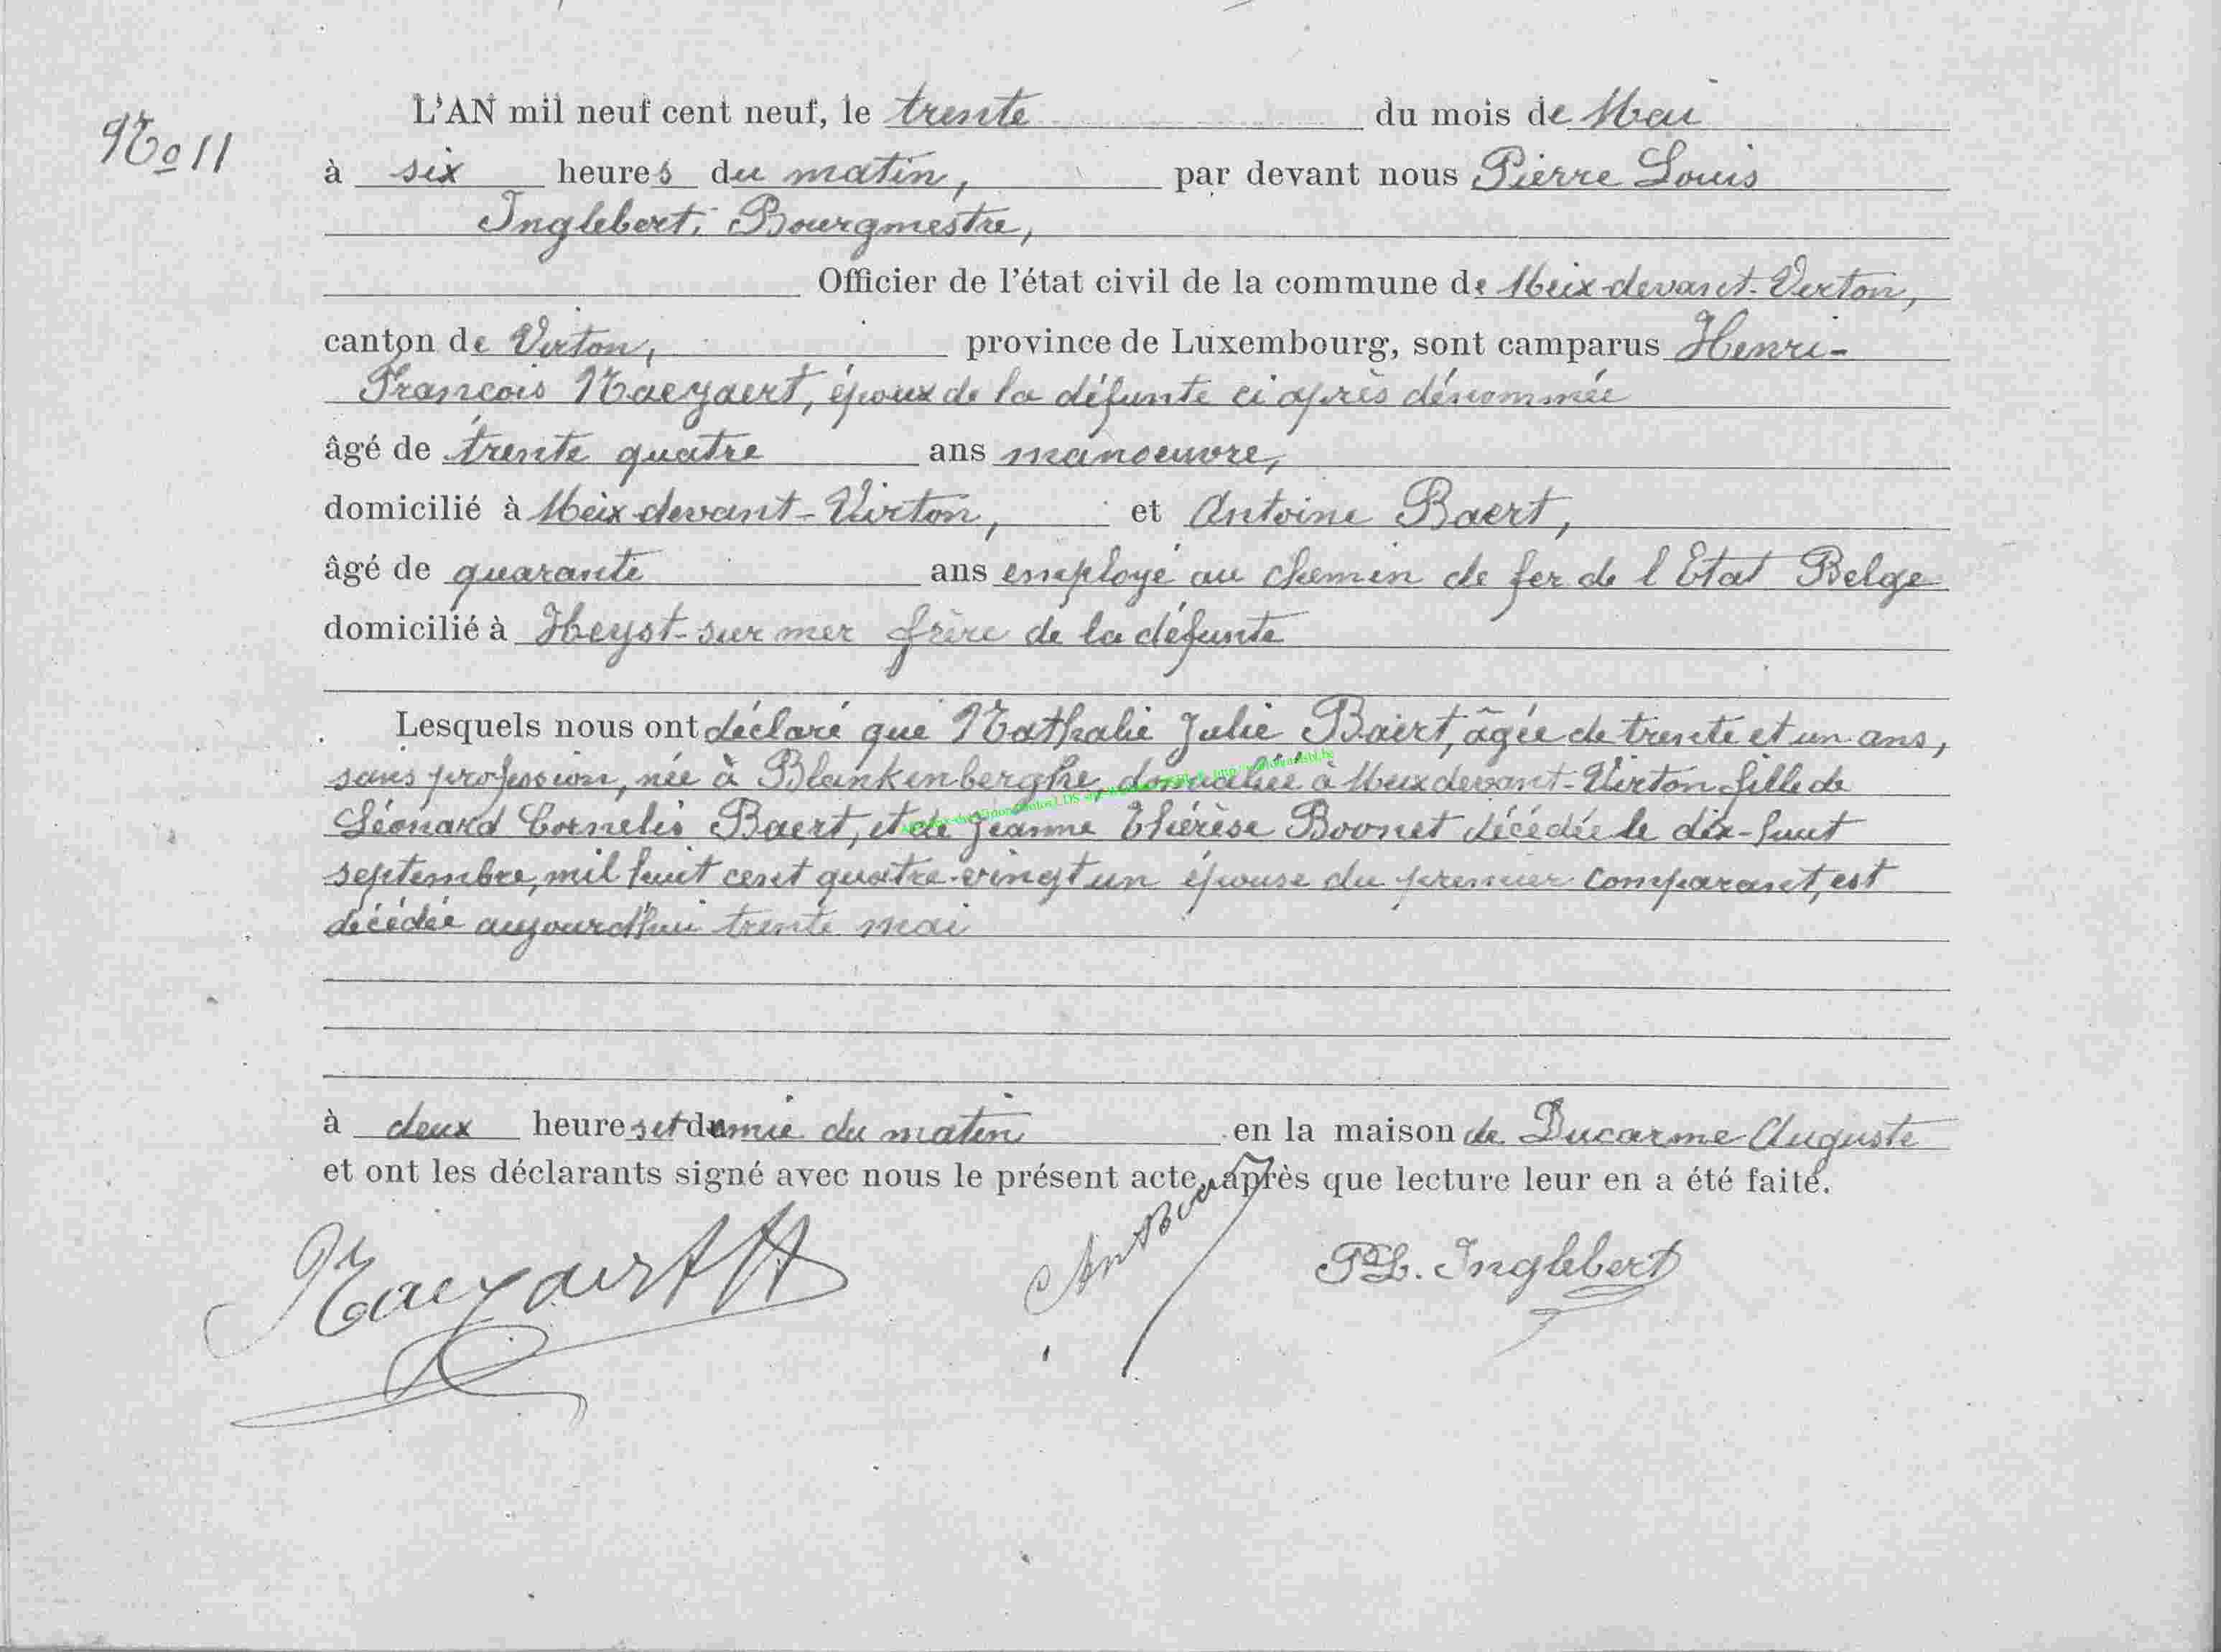 No 11
L'AN mil neuf cent neuf, le trente du mois de Mai
à six heures du matin, par devant nous Pierre Louis
Inglebert, Bourgmestre,
Officier de l'état civil de la commune de Meix-devant-Virton,
canton de Virton, province de Luxembourg, sont camparus Henri-
François Naeyaert, époux de la défunte ci après dénommée
âgé de trente quatre ans manoeuvre,
domicilié à Meix-devant-Virton, et Antoine Baert,
âgé de quarante ans employé au chemin de fer de l'Etat Belge
domicilié à Heyst-sur mer frère de la défunte
Lesquels nous ont déclaré que Nathalie Julie Baert, âgée de trente et un ans,
sans profession, née à Blankenberghe, domiciliée à Meix devant-Virton fille de
Léonard Cornelis Baert, et de Jeanne Thérèse Boonet décédée le dix-huit
septembre, mil huit cent quatre-vingt un épouse du premier comparant, est
décédée aujourd'hui trente mai
à deux heures et demie du matin en la maison de Ducarme Auguste
et ont les déclarants signé avec nous le présent acte, après que lecture leur en a été faite.
Naeyaert H
Ant Baert
P.L. Inglebert